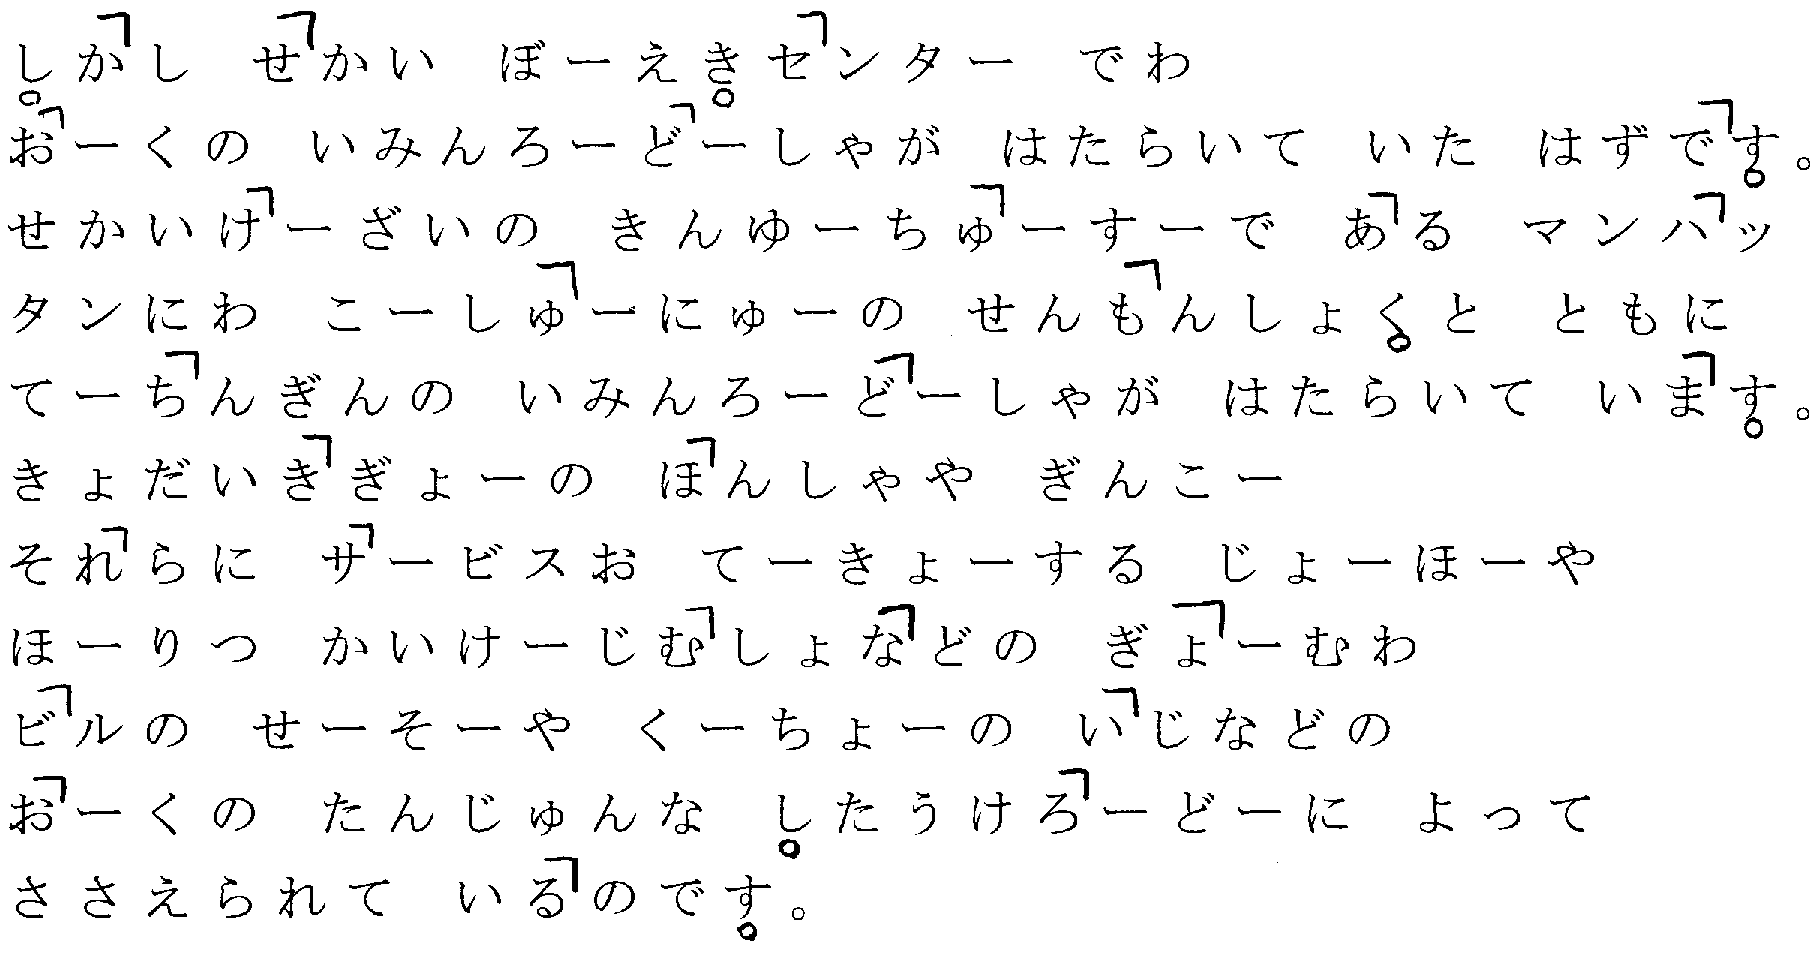 しかし せかい ぼーえきセンター でわ
おーくの いみんろーどーしゃが はたらいて いた はずです。
せかいけーざいの きんゆーちゅーすーで ある マンハッ
タンにわ こーしゅーにゅーの せんもんしょくと ともに
てーちんぎんの いみんろーどーしゃが はたらいて います。
きょだいきぎょーの ほんしゃや ぎんこー
それらに サービスお てーきょーする じょーほーや
ほーりつ かいけーじむしょなどの ぎょーむわ
ビルの せーそーや くーちょーの いじなどの
おーくの たんじゅんな したうけろーどーに よって
ささえられて いるのです。